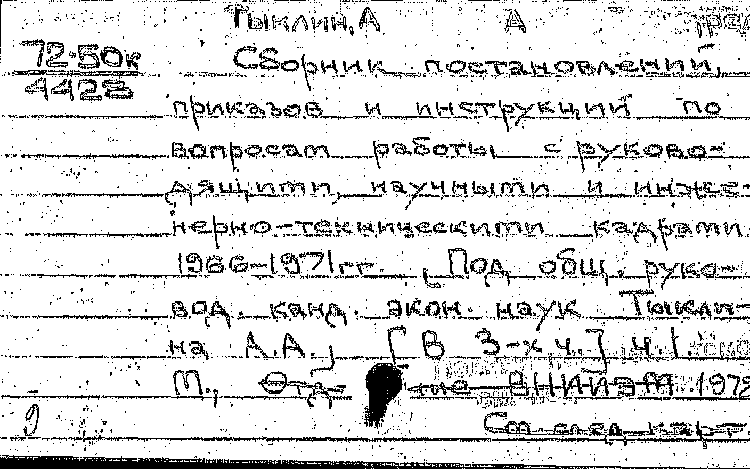 Тыклин, А А
72-50к
4428
Сборник постановлений,
приказов и инструкций по
вопросам работы с руково-
дящими, научными и инже-
нерно-техническими кадрами.
1966-1971гг. Под общ. руко-
вод. канд. экон. наук Тыкли-
на А.А., [В 3-х ч.] Ч.1.
М., Отд ВНИИЭМ 1972
См след карт.
9